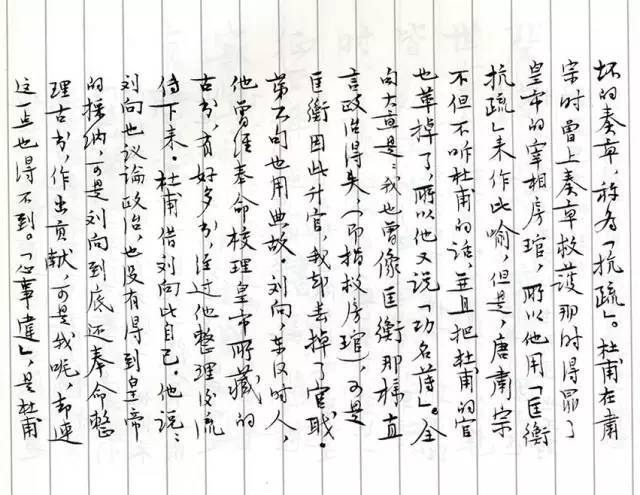 坏的奏章，称为「抗疏」。杜甫在肃
宗时曾上奏章救护那时得罪了
皇帝的宰相房琯，所以他用「匡衡
抗疏」来作比喻，但是，唐肃宗
不但不听杜甫的话，并且把杜甫的官
也革掉了，所以他又说「功名薄」。全
句大意是，我也曾像匡衡那样直
言政治得失，（即指救房琯），可是
匡衡因此升官，我却丢掉了官职。
第六句也用典故。刘向，东汉时人，
他曾经奉命校理皇帝所藏的
古书，有好多书，经过他整理后流
传下来。杜甫借刘向比自己。他说：
刘向也议论政治，也没有得到皇帝
的採纳，可是刘向到底还奉命整
理古书，作出贡献，可是我呢，却连
这一点也得不到。「心事违」，是杜甫